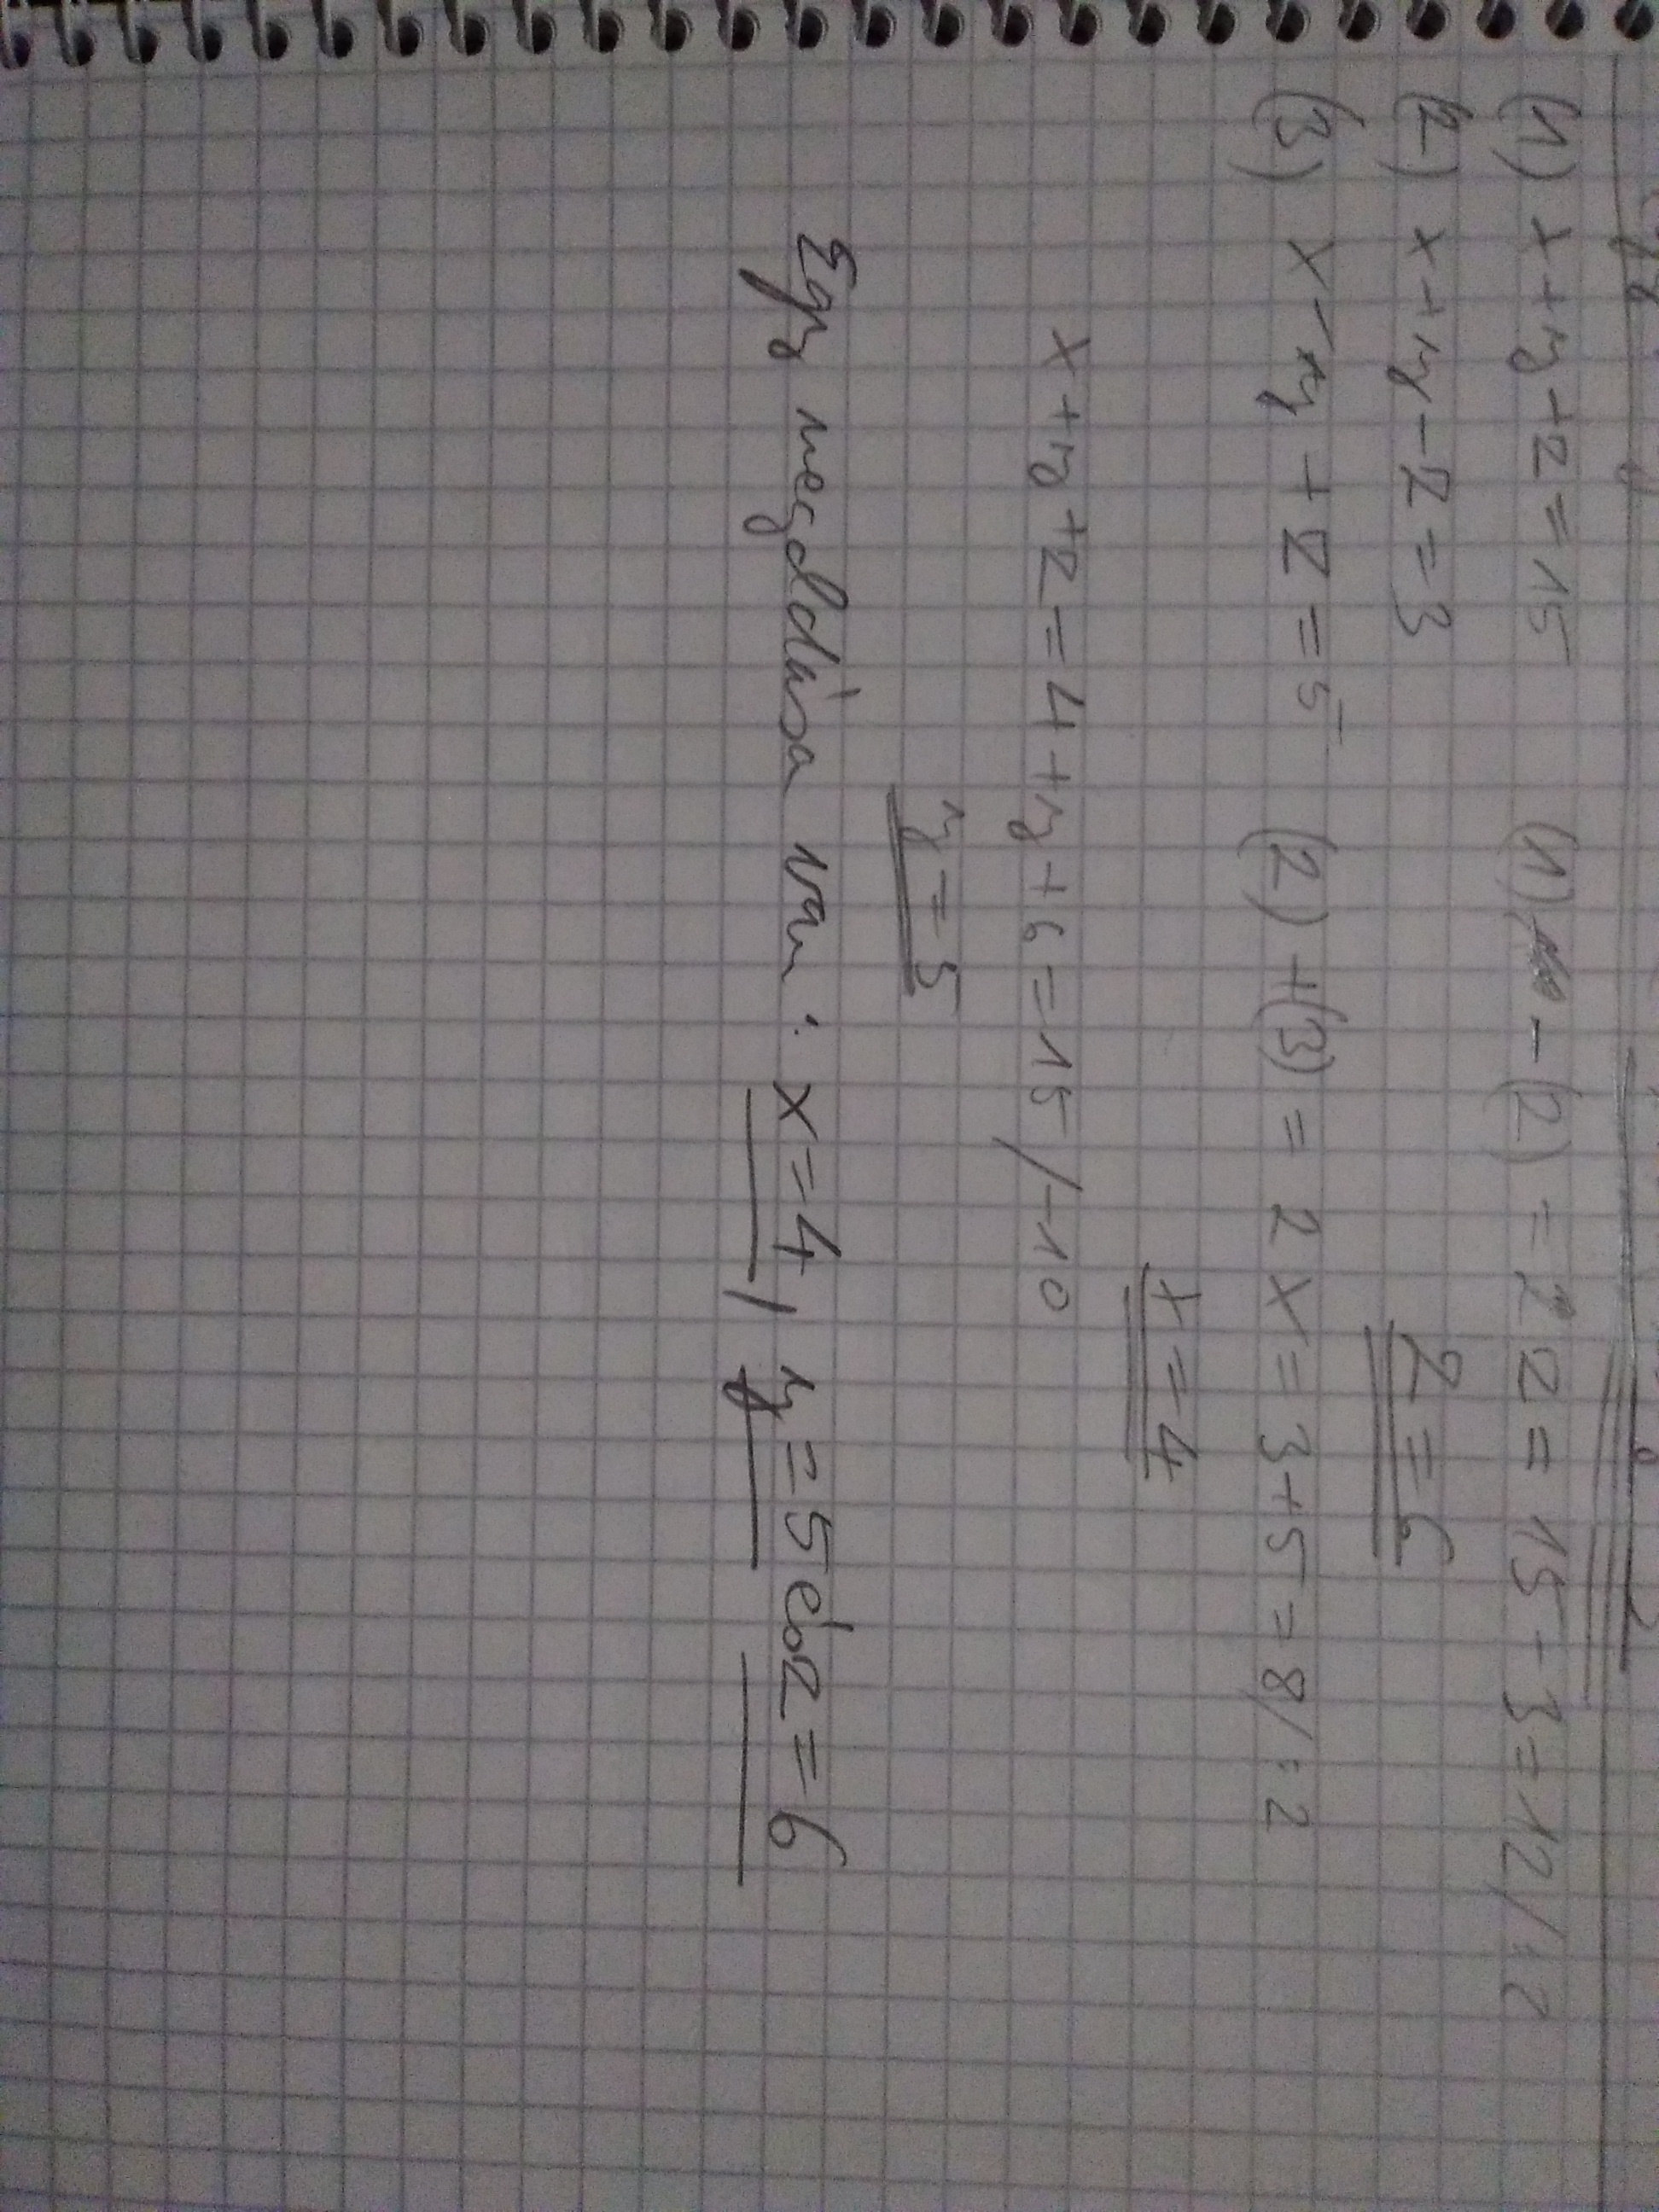 (1) x+y+z=15 (1) - (2) = 2z = 15-3=12/:2
(2) x+y-z=3 z=6
(3) x-y+z=5 (2)+(3) = 2x=3+5=8/:2
x=4
x+y+z=4+y+6=15/-10
y=5
Egy megoldása van: x=4, y=5 és z=6